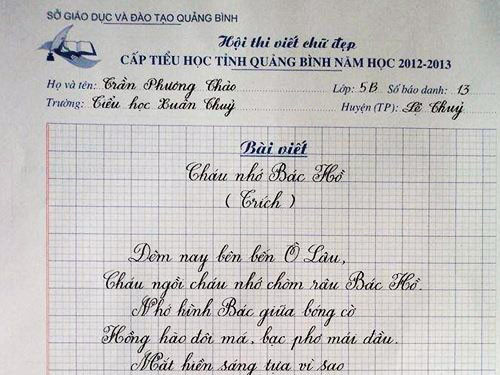 SỞ GIÁO DỤC VÀ ĐÀO TẠO QUẢNG BÌNH
Hội thi viết chữ đẹp
CẤP TIỂU HỌC TỈNH QUẢNG BÌNH NĂM HỌC 2012-2013
Họ và tên: Trần Phương Thảo Lớp: 5B Số báo danh: 13
Trường: Tiểu học Xuân Thuỷ Huyện (TP): Lệ Thuỷ
Bài viết
Cháu nhớ Bác Hồ
( Trích )
Đêm nay bên bến Ô Lâu,
Cháu ngồi cháu nhớ chòm râu Bác Hồ.
Nhớ hình Bác giữa bóng cờ
Hồng hào đôi má, bạc phơ mái đầu.
Mắt hiền sáng tựa vì sao